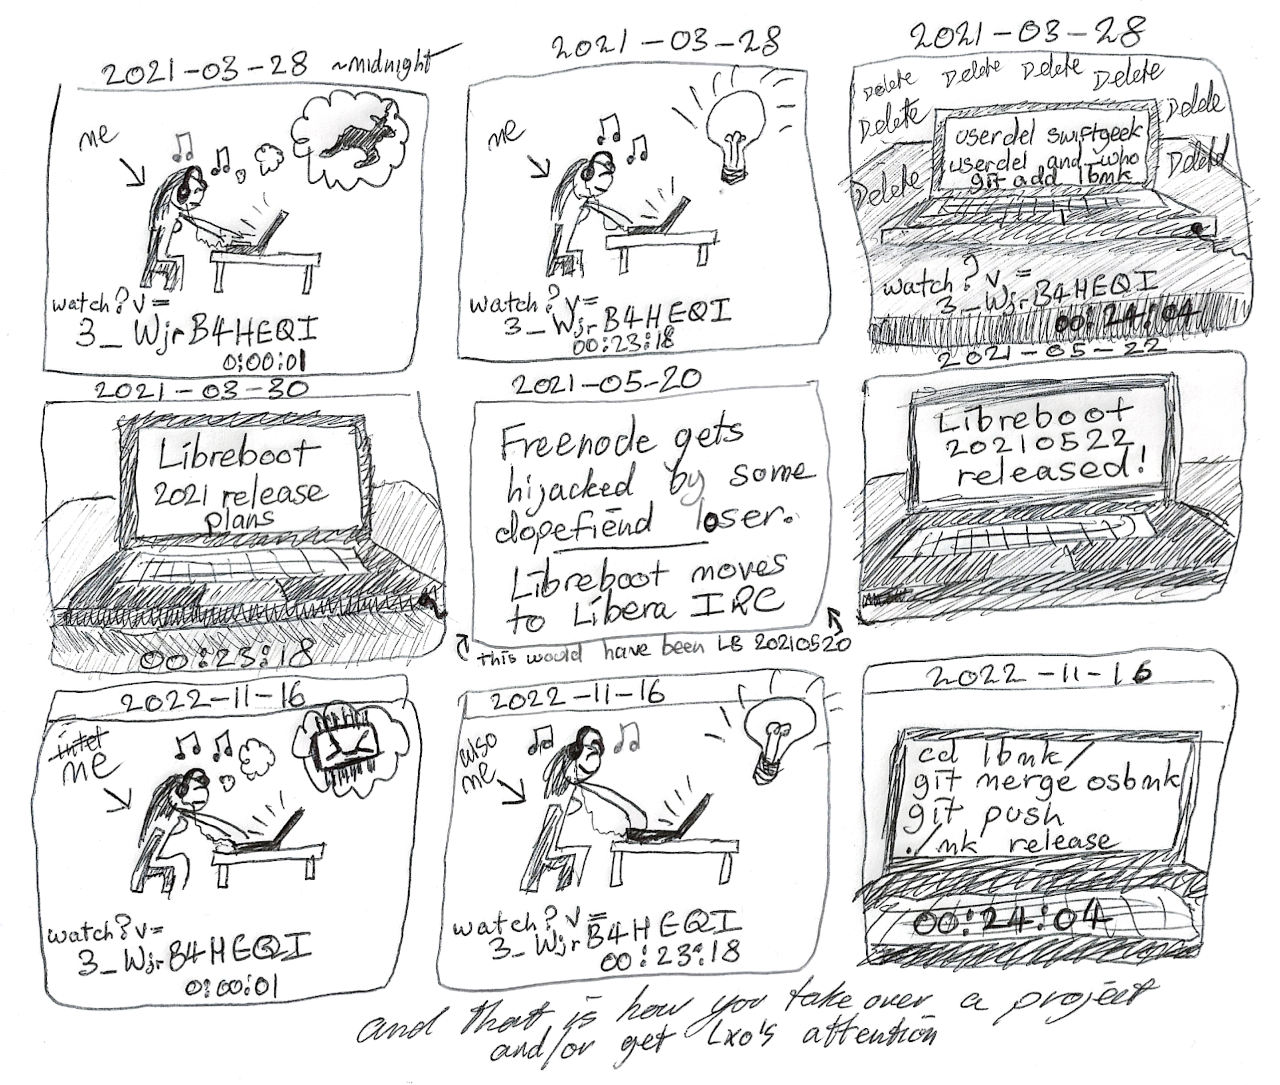 2021-03-28 ~midnight
me
watch?v=
3_WjrB4HEQI
0:00:01
2021-03-28
me
watch?v=
3_WjrB4HEQI
00:23:18
2021-03-28
Delete Delete Delete Delete
Delete Delete
Delete Delete
userdel swiftgeek
userdel and_who
git add lbmk
watch?v=
3_WjrB4HEQI
00:24:04
2021-03-30
Libreboot
2021 release
plans
00:23:18
2021-05-20
Freenode gets
hijacked by some
dopefiend loser.
Libreboot moves
to Libera IRC
this would have been LB 20210520
2021-05-22
Libreboot
20210522
released!
2022-11-16
intel
me
watch?v=
3_WjrB4HEQI
0:00:01
2022-11-16
also
me
watch?v=
3_WjrB4HEQI
00:23:18
2022-11-16
cd lbmk/
git merge osbmk
git push
./mk release
00:24:04
and that is how you take over a project
and/or get Lxo's attention